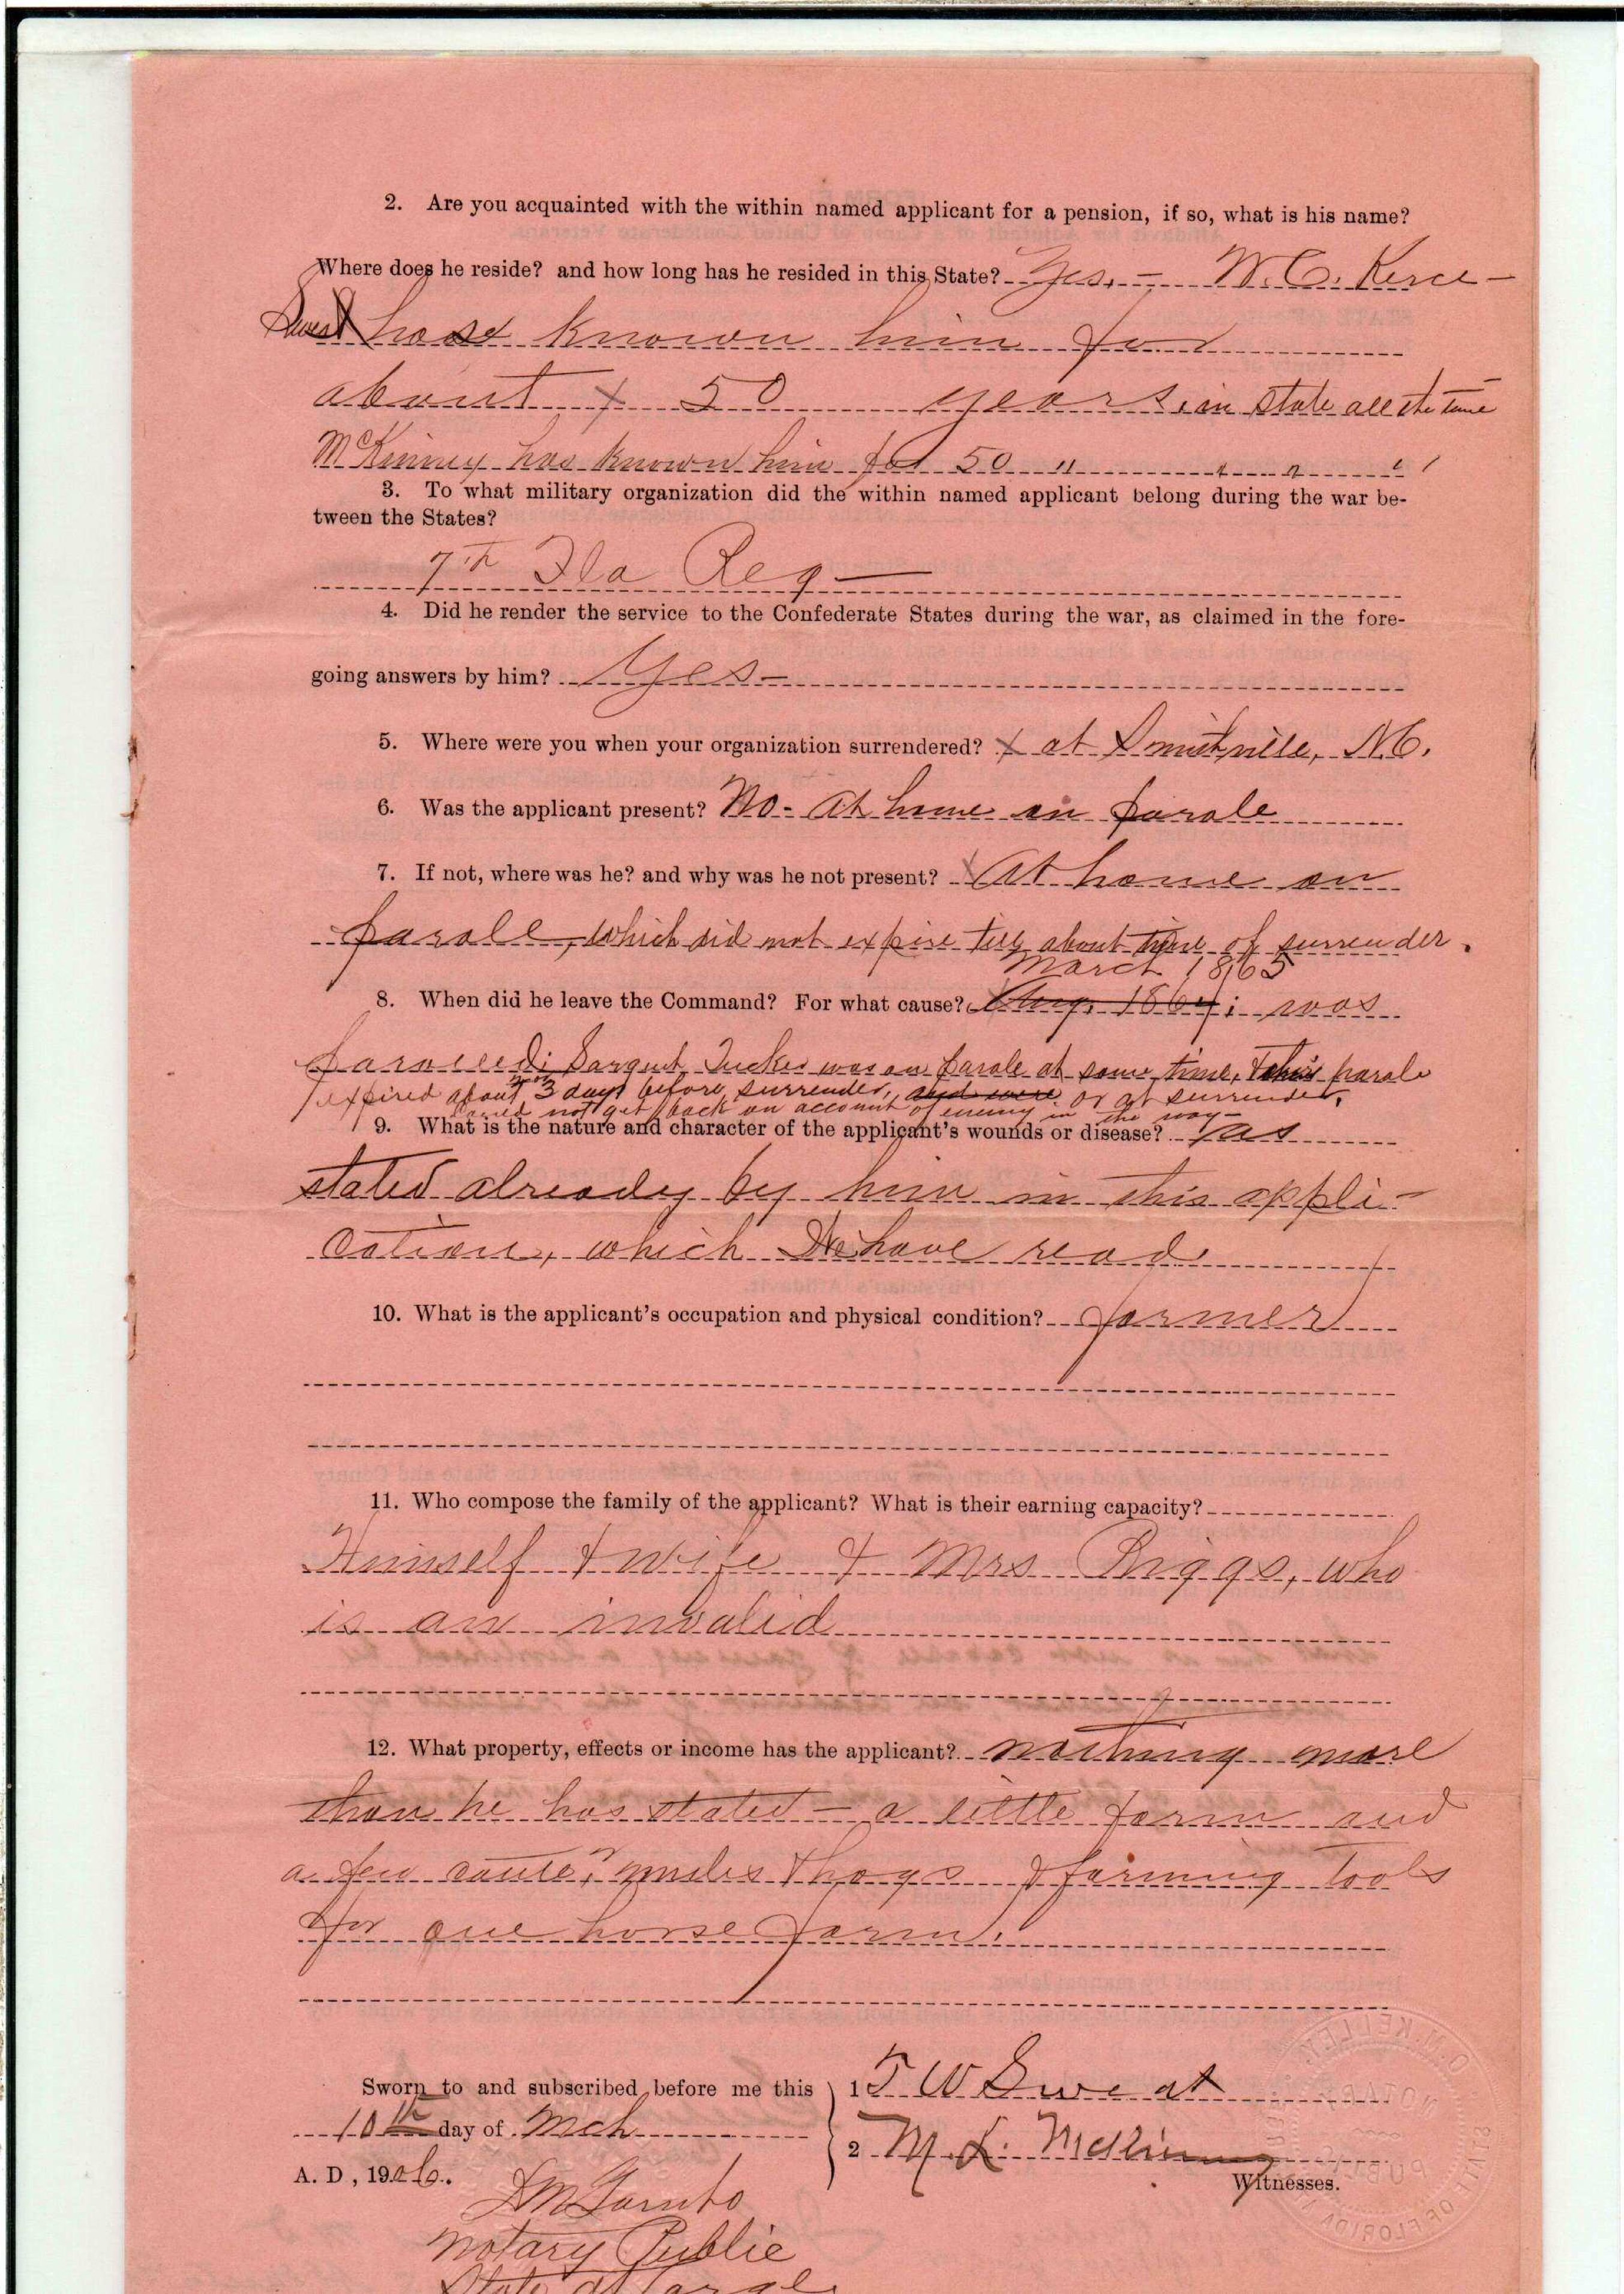 2. Are you acquainted with the within named applicant for a pension, if so, what is his name?
Where does he reside? and how long has he resided in this State? Yes, — W. C. Kerce —
Sweat has known him for
about x 50 years, in state all the time
McKinney has known him for 50 " " " "
3. To what military organization did the within named applicant belong during the war be-
tween the States?
7th Fla Reg —
4. Did he render the service to the Confederate States during the war, as claimed in the fore-
going answers by him? Yes —
5. Where were you when your organization surrendered? x at Smithville, N.C.
6. Was the applicant present? No - At home on parole
7. If not, where was he? and why was he not present? x At home on
parole, which did not expire till about time of surrender.
March 1865
8. When did he leave the Command? For what cause? Aug. 1864; was
paroled; Sargent Tucker was on parole at same time, & this parole
expired about 3 days before surrender, and were or at surrender,
could not get back on account of enemy in the way —
9. What is the nature and character of the applicant's wounds or disease? as
stated already by him in this appli-
cation, which We have read.
10. What is the applicant's occupation and physical condition? farmer
11. Who compose the family of the applicant? What is their earning capacity?
Himself & wife & Mrs Riggs, who
is an invalid
12. What property, effects or income has the applicant? nothing more
than he has stated — a little farm and
a few cattle, mules & hogs & farming tools
for one horse farm.
Sworn to and subscribed before me this
10th day of Mch
A. D, 1906.
1 T W Sweat
2 M. L. McKinney
Witnesses.
Notary Public
State at Large
O. M. KELLEY
NOTARY PUBLIC
STATE OF FLORIDA